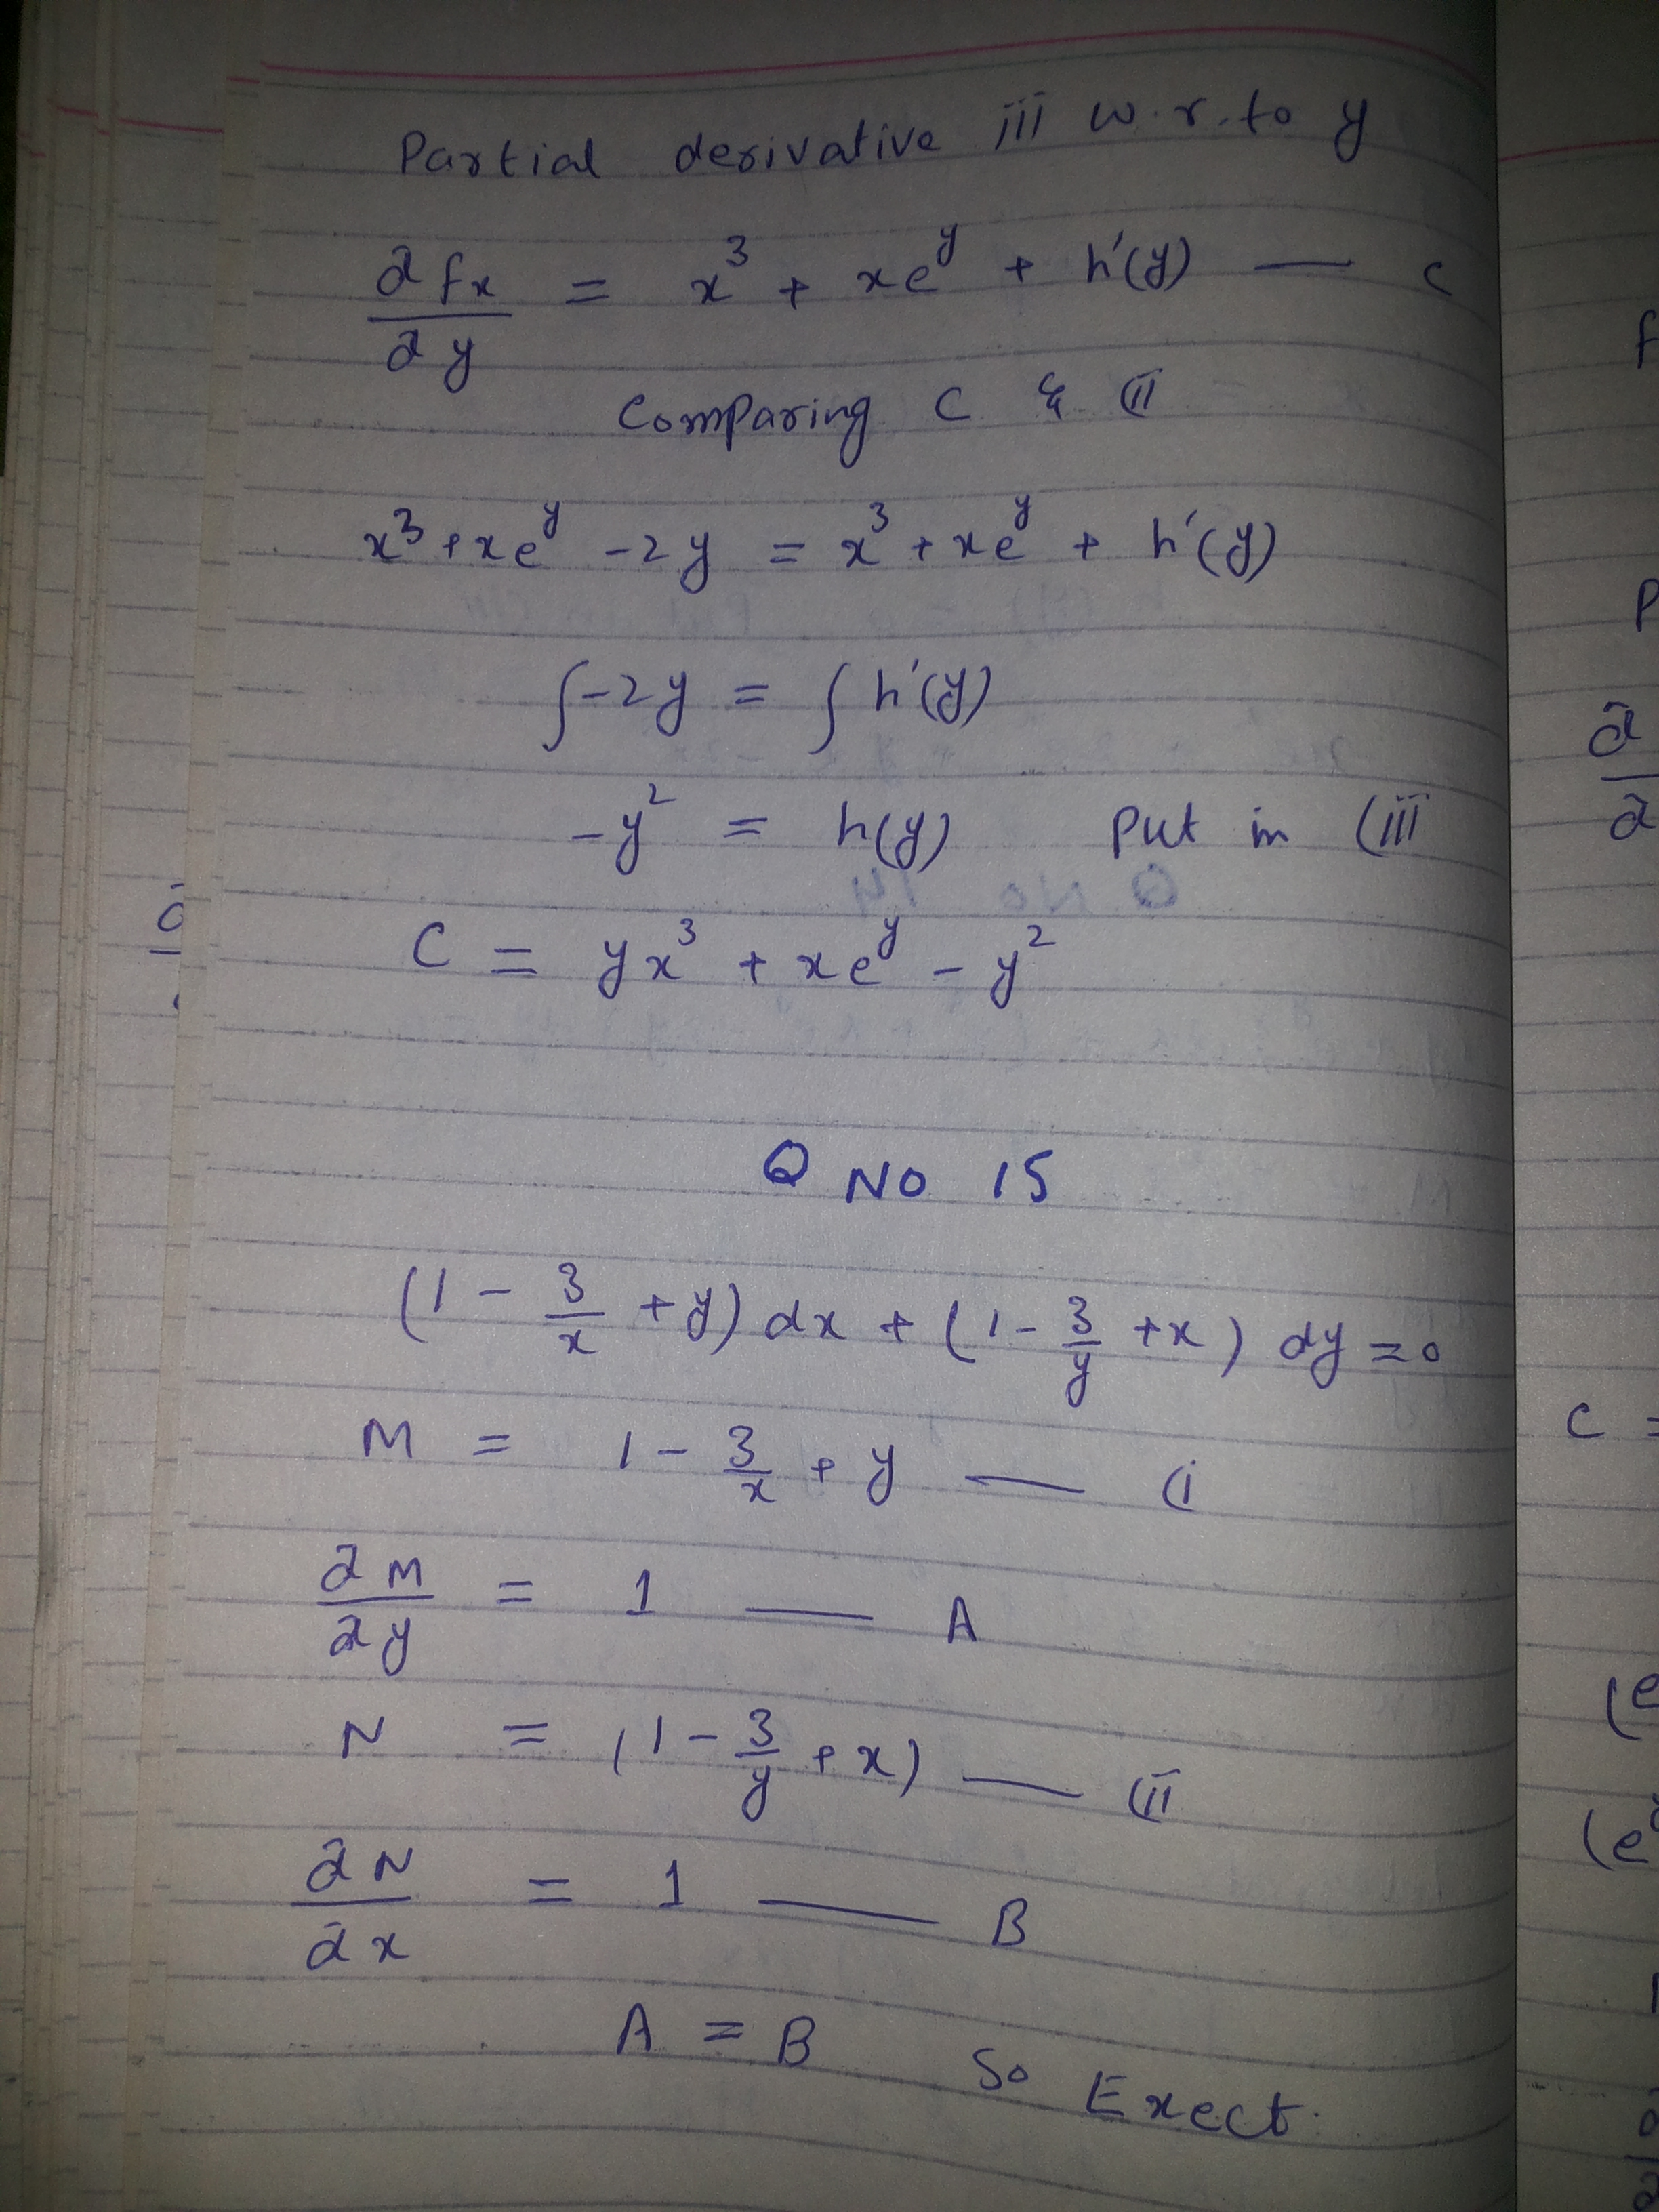 Partial derivative iii w.r.to y
∂fx/∂y = x³ + xe^y + h'(y) — c
Comparing C & (ii
x³ + xe^y - 2y = x³ + xe^y + h'(y)
∫-2y = ∫h'(y)
-y² = h(y) Put in (iii
C = yx³ + xe^y - y²
Q No 15
(1 - 3/x + y) dx + (1 - 3/y + x) dy = 0
M = 1 - 3/x + y — (i
∂M/∂y = 1 — A
N = (1 - 3/y + x) — (ii
∂N/∂x = 1 — B
A = B So Exect.